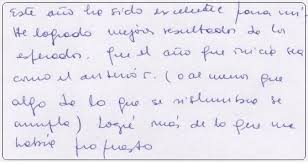 Este año ha sido excelente para mí
He logrado mejores resultados de los
esperados. Que el año que inicia sea
como el anterior. (o al menos que
algo de lo que se vislumbra se
cumpla) Logré más de lo que me
había propuesto